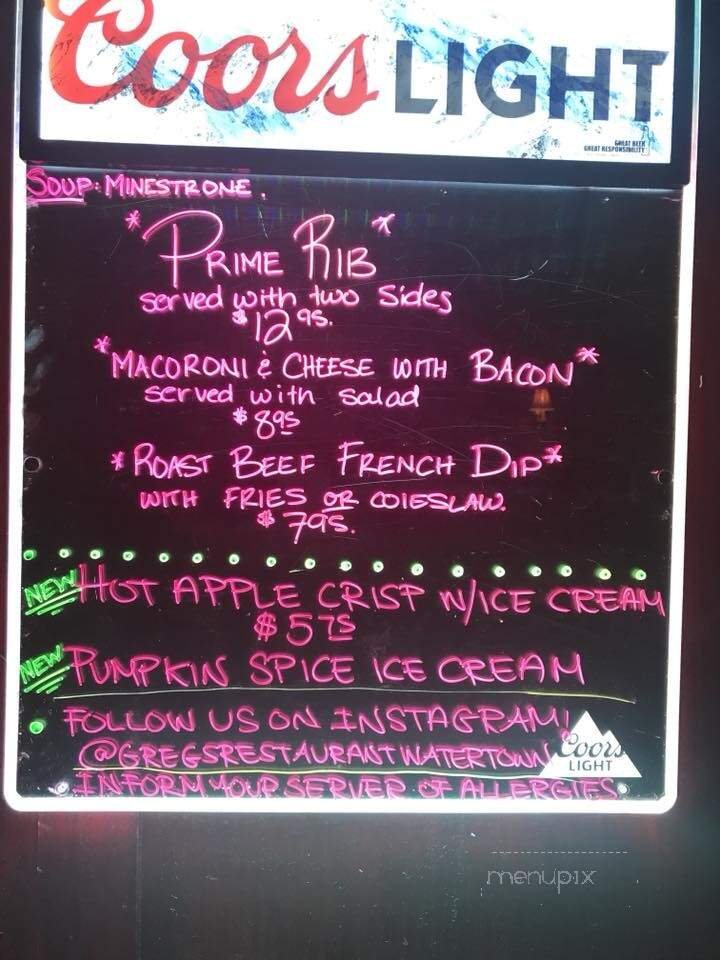 Coors LIGHT
GREAT BEER
GREAT RESPONSIBILITY
SOUP: MINESTRONE.
*PRIME RIB*
served with two Sides
$12 95.
*MACORONI & CHEESE WITH BACON*
served with salad
$8 95
*ROAST BEEF FRENCH DIP*
WITH FRIES OR COLESLAW.
$7 95.
NEW HOT APPLE CRISP W/ICE CREAM
$5 75
NEW PUMPKIN SPICE ICE CREAM
• FOLLOW US ON INSTAGRAM!
@GREGSRESTAURANTWATERTOWN
• INFORM YOUR SERVER OF ALLERGIES
Coors
LIGHT
menupix